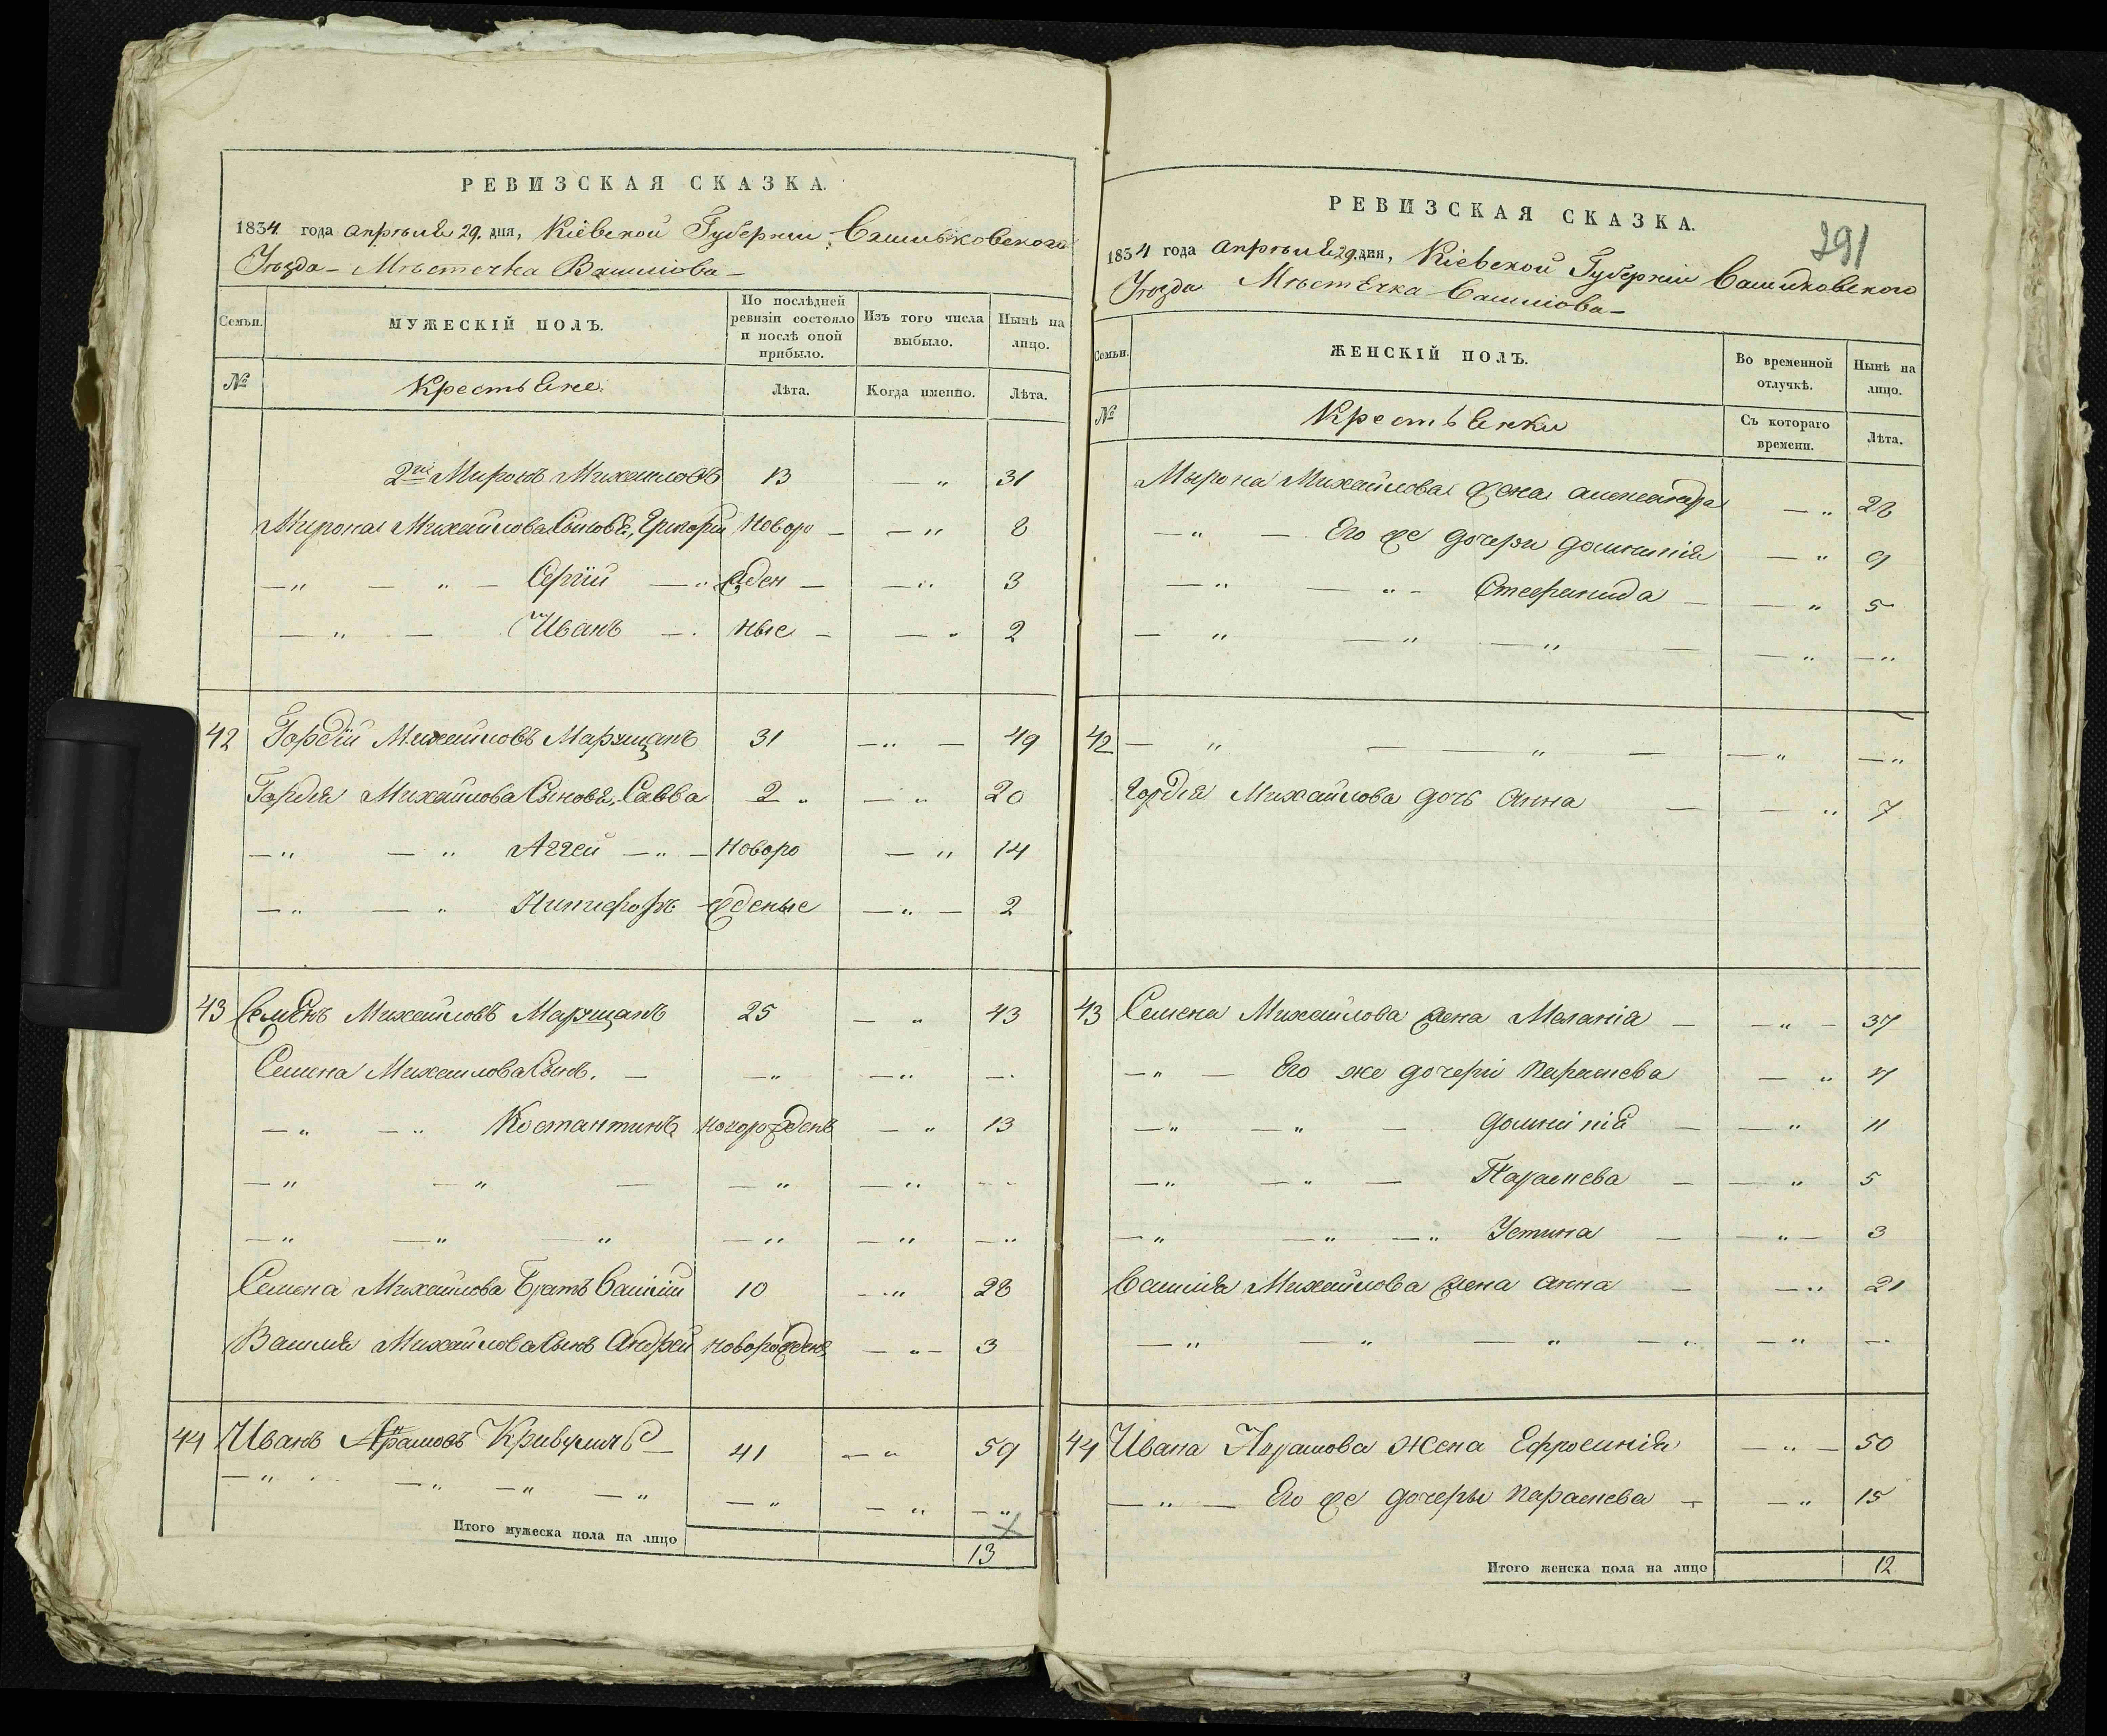 РЕВИЗСКАЯ СКАЗКА.
1834 года апреля 29. дня, Кіевской Губерніи Васильковского
Уезда - Местечка Василіова -
Семьи. МУЖЕСКІЙ ПОЛЪ. По послѣдней ревизіи состояло и послѣ оной прибыло. Изъ того числа выбыло. Нынѣ на лицо.
№ Крестьяне. Лѣта. Когда именно. Лѣта.
2й Миронъ Михайловъ 13 — „ 31
Мирона Михайлова Сыновя, Григорій Новоро — — „ 8
— „ — „ — Сергій — „ жден — — „ 3
— „ — Иванъ — ные — — „ 2
42 Гордій Михайловъ 31 — „ — 49
Гордія Михайлова Сыновя, Савва 2 „ — „ 20
— „ — „ Аггей — „ — Новоро — „ 14
— „ — „ Никифоръ жденые — „ — 2
43 Семенъ Михайловъ 25 — „ 43
Семена Михайлова Сынов. — — „ — „ —
— „ — „ Костантинъ новорожденъ — „ 13
— „ — „ — — „ — „ — -
— „ — „ — „ — „ — „ — „
Семена Михайлова Братъ Василій 10 — „ 28
Василія Михайлова Сынъ Андрей новорожденъ — „ — 3
44 Иванъ 41 — „ 59
— „ — „ — „ — „ — „ — „ — „
Итого мужеска пола на лицо 13
РЕВИЗСКАЯ СКАЗКА.
291
1834 года апреля 29. дня, Кіевской Губерніи Васильковского
Уезда Местечка Василіова —
Семьи. ЖЕНСКІЙ ПОЛЪ. Во временной отлучкѣ. Нынѣ на лицо.
№ Крестьянки Съ котораго времени. Лѣта.
Мырона Михайлова жена александра — „ 28
— „ — Его же дочери домникія — „ 9
— „ — „ - Стефанида — — „ 5
— „ — „ — „ — — „ — „
42 — „ — — „ — — „ — „
Гордія Михайлова дочь анна — — „ 7
43 Семена Михайлова жена Меланія — — „ — 37
— „ — Его же дочери параскева — „
— „ — „ — домникія — — „ 11
— „ — „ — Параскева — — „ 5
— „ — „ — „ Устина — — „ — 3
Василія Михайлова жена анна — — „ 21
— „ — „ — „ — „ — „ —
44 Ивана жена Ефросинія — „ — 50
— „ — Его же дочеры параскева — — „ 15
Итого женска пола на лицо 12